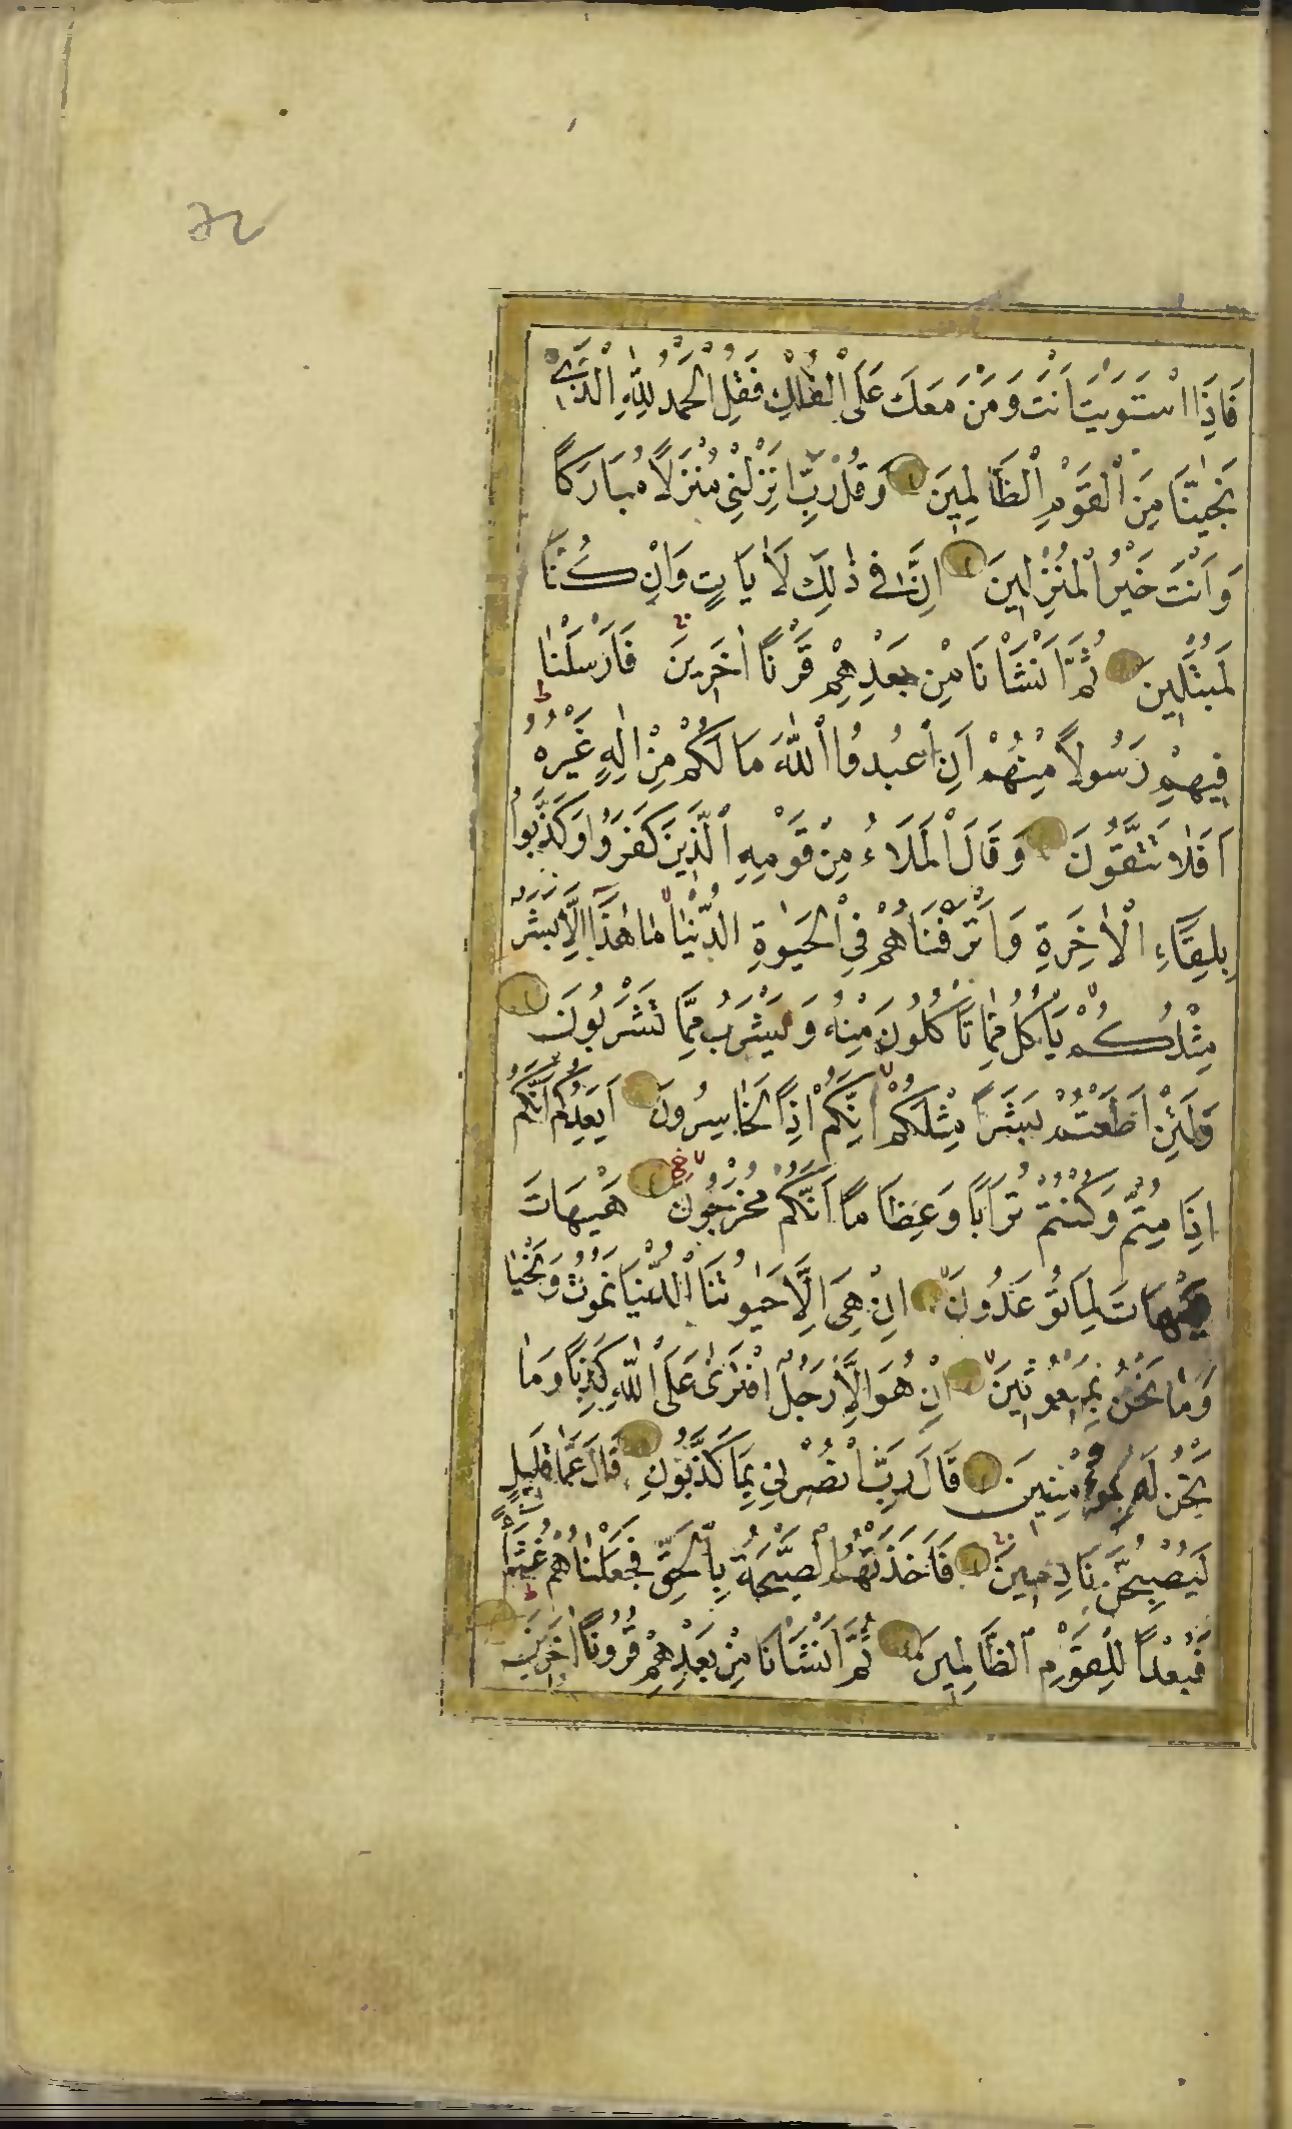 فَاِذَا اسْتَوَيْتَ اَنْتَ وَمَنْ مَعَكَ عَلَى الْفُلْكِ فَقُلِ الْحَمْدُ لِلّٰهِ الَّذٖى
نَجّٰينَا مِنَ الْقَوْمِ الظَّالِمٖينَ وَقُلْ رَبِّ اَنْزِلْنٖى مُنْزَلًا مُبَارَكًا
وَاَنْتَ خَيْرُ الْمُنْزِلٖينَ اِنَّ فٖى ذٰلِكَ لَاٰيَاتٍ وَاِنْ كُنَّا
لَمُبْتَلٖينَ ثُمَّ اَنْشَاْنَا مِنْ بَعْدِهِمْ قَرْنًا اٰخَرٖينَ فَاَرْسَلْنَا
فٖيهِمْ رَسُولًا مِنْهُمْ اَنِ اعْبُدُوا اللّٰهَ مَالَكُمْ مِنْ اِلٰهٍ غَيْرُهُ
اَفَلَا تَتَّقُونَ وَقَالَ الْمَلَاُ مِنْ قَوْمِهِ الَّذٖينَ كَفَرُوا وَكَذَّبُوا
بِلِقَاءِ الْاٰخِرَةِ وَاَتْرَفْنَاهُمْ فِى الْحَيٰوةِ الدُّنْيَا مَا هٰذَا اِلَّا بَشَرٌ
مِثْلُكُمْ يَاْكُلُ مِمَّا تَاْكُلُونَ مِنْهُ وَيَشْرَبُ مِمَّا تَشْرَبُونَ
وَلَئِنْ اَطَعْتُمْ بَشَرًا مِثْلَكُمْ اِنَّكُمْ اِذًا لَخَاسِرُونَ اَيَعِدُكُمْ اَنَّكُمْ
اِذَا مِتُّمْ وَكُنْتُمْ تُرَابًا وَعِظَامًا اَنَّكُمْ مُخْرَجُونَ هَيْهَاتَ
هَيْهَاتَ لِمَا تُوعَدُونَ اِنْ هِىَ اِلَّا حَيٰوتُنَا الدُّنْيَا نَمُوتُ وَنَحْيَا
وَمَا نَحْنُ بِمَبْعُوثٖينَ اِنْ هُوَ اِلَّا رَجُلٌ افْتَرٰى عَلَى اللّٰهِ كَذِبًا وَمَا
نَحْنُ لَهُ بِمُؤْمِنٖينَ قَالَ رَبِّ انْصُرْنٖى بِمَا كَذَّبُونِ قَالَ عَمَّا قَلٖيلٍ
لَيُصْبِحُنَّ نَادِمٖينَ فَاَخَذَتْهُمُ الصَّيْحَةُ بِالْحَقِّ فَجَعَلْنَاهُمْ غُثَاءً
فَبُعْدًا لِلْقَوْمِ الظَّالِمٖينَ ثُمَّ اَنْشَاْنَا مِنْ بَعْدِهِمْ قُرُونًا اٰخَرٖينَ